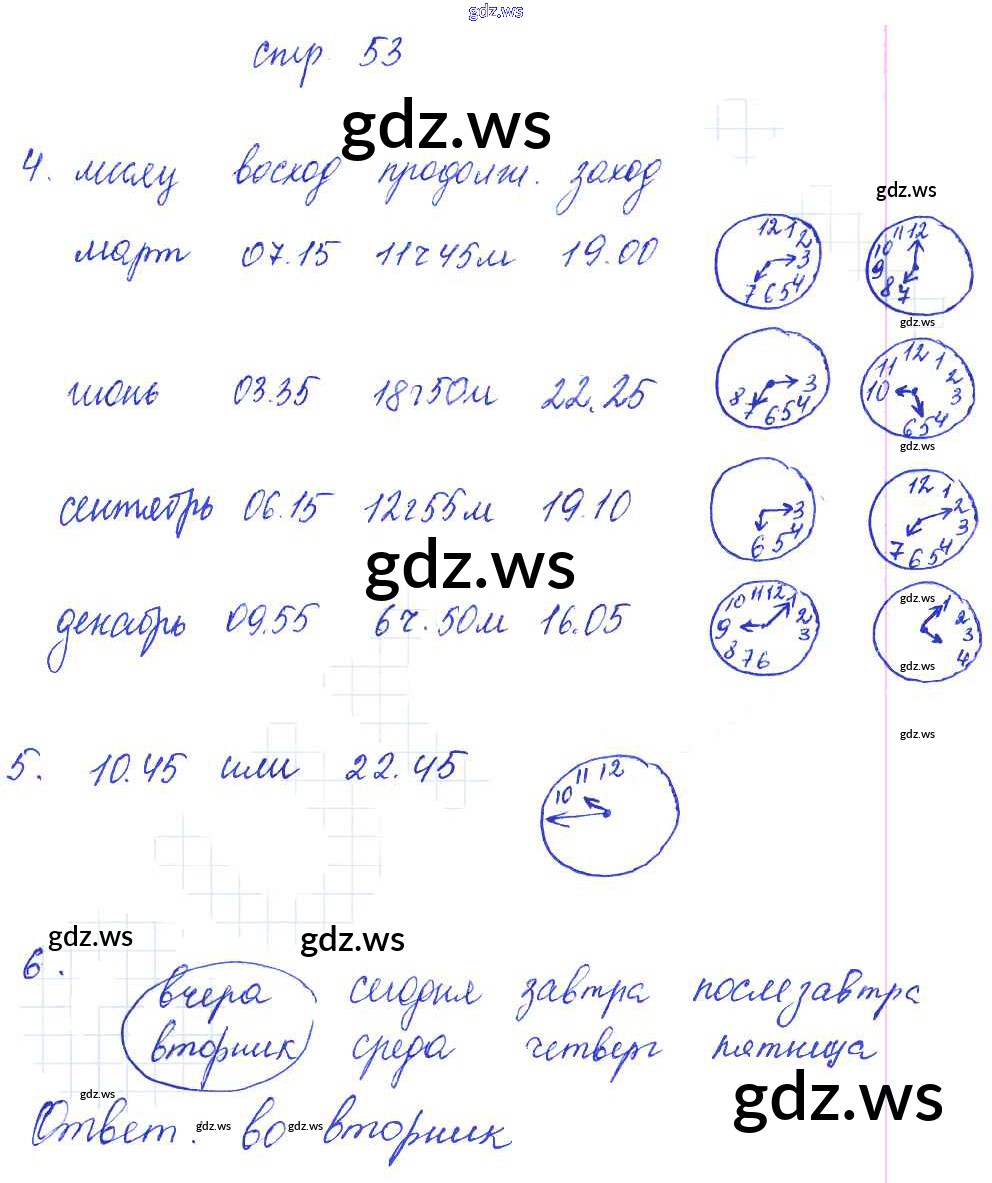 gdz.ws
стр. 53
gdz.ws
4. месяц восход продолж. заход
gdz.ws
март 07.15 11ч45м 19.00
12 1 2 3 4 5 6 7
12 11 10 9 8 7
gdz.ws
июнь 03.35 18ч50м 22.25
3 4 5 6 7 8
12 1 2 3 4 5 6 10 11
gdz.ws
сентябрь 06.15 12ч55м 19.10
3 4 5 6
12 1 2 3 4 5 6 7
gdz.ws
декабрь 09.55 6ч.50м 16.05
10 11 12 1 2 3 6 7 8 9
gdz.ws
1 2 3 4
gdz.ws
gdz.ws
5. 10.45 или 22.45
10 11 12
gdz.ws gdz.ws
6.
вчера сегодня завтра послезавтра
вторник среда четверг пятница
gdz.ws
gdz.ws
Ответ: во вторник
gdz.ws gdz.ws